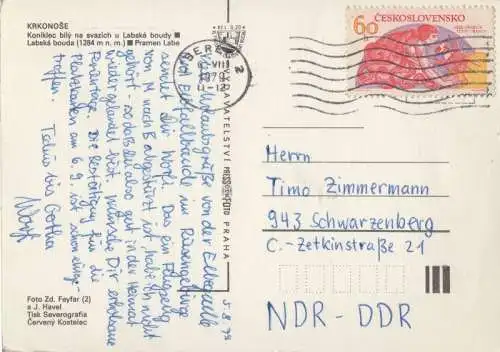 KRKONOŠE
Koniklec bílý na svazích u Labské boudy ■
Labská bouda (1284 m n. m.) ■ Pramen Labe
Foto Zd. Feyfar (2)
a J. Havel
Tisk Severografia
Červený Kostelec
VYDAVATELSTVÍ PRESSFOTO PRAHA
2
VIII
79
11-12
ČESKOSLOVENSKO
60
Urlaubsgrüße von der Elbquelle
von Elbfallbaude im Riesengebirge
sendet Dir Wolf. Das ein Flugzeug
von M nach B abgestürzt ist hab ich nicht
gehört. - sodaß Du also gut in der Heimat
wieder gelandet bist. Wünsche Dir erholsame
Ferientage. Die Bestätigung für die
Platzkarten am 6.9. ist schon einge-
troffen. Tschüs bis Gotha
Wolf
5.8.79
Herrn
Timo Zimmermann
943 Schwarzenberg
C.-Zetkinstraße 21
NDR-DDR